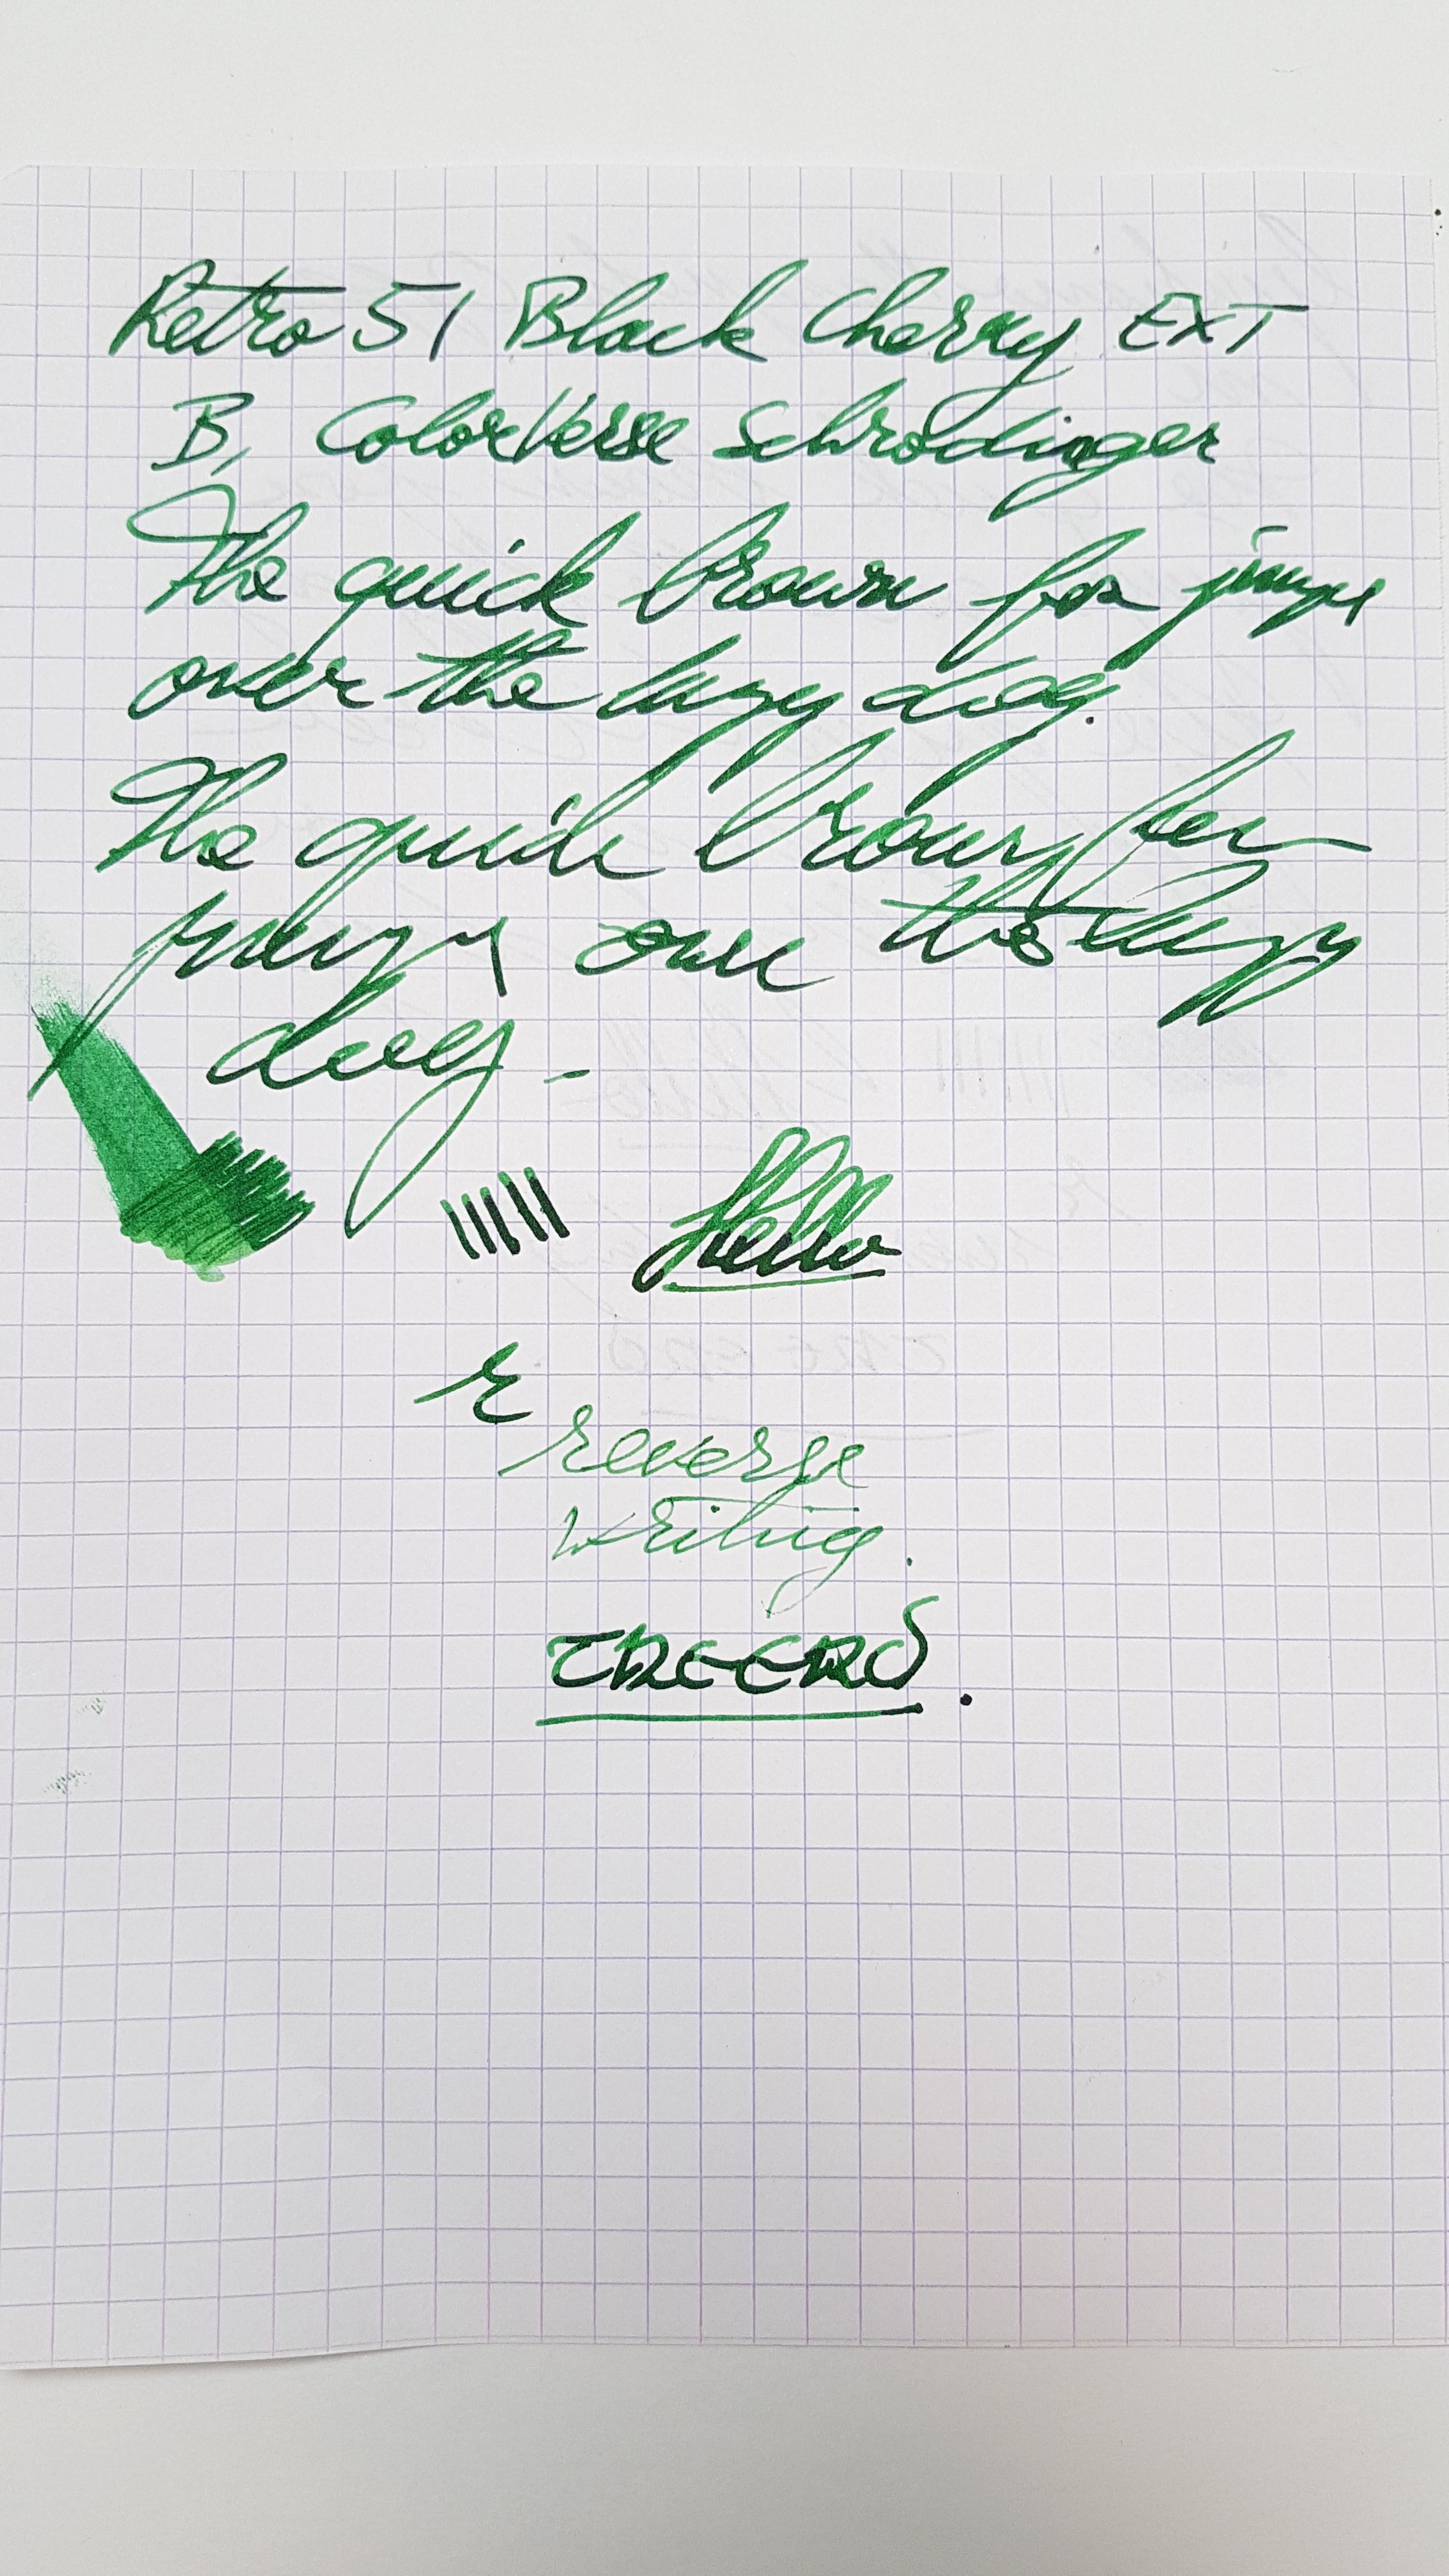 Retro 51 Black Cherry EXT
B, ColorVerse Schrödinger
The quick brown fox jumps
over the lazy dog.
The quick brown fox
jumps over the lazy
dog.
Hello
r
reverse
writing.
THE END.